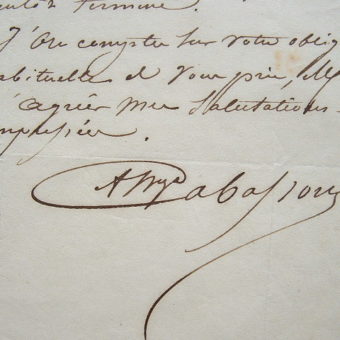 terminé.
J'ose compter sur votre oblig
habituelle et vous prie, M
d'agréer mes salutations
empressées.